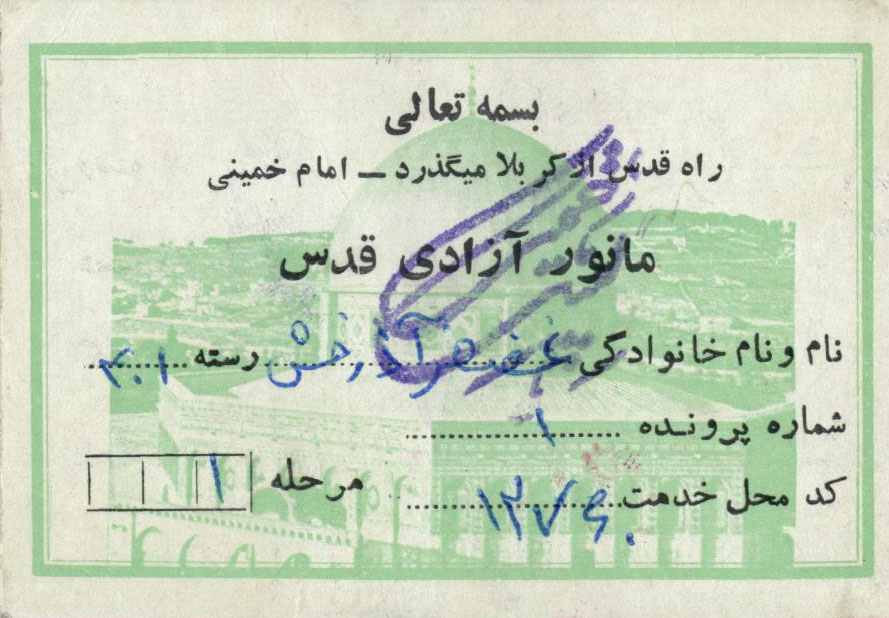 بسمه تعالی
راه قدس از کربلا میگذرد ــ امام خمینی
مانور آزادی قدس
نام و نام خانوادگی غضنفر آذرخش رسته ۳۰۱
شماره پرونده ۱
کد محل خدمت ۱۳۷۶۰ مرحله ۱